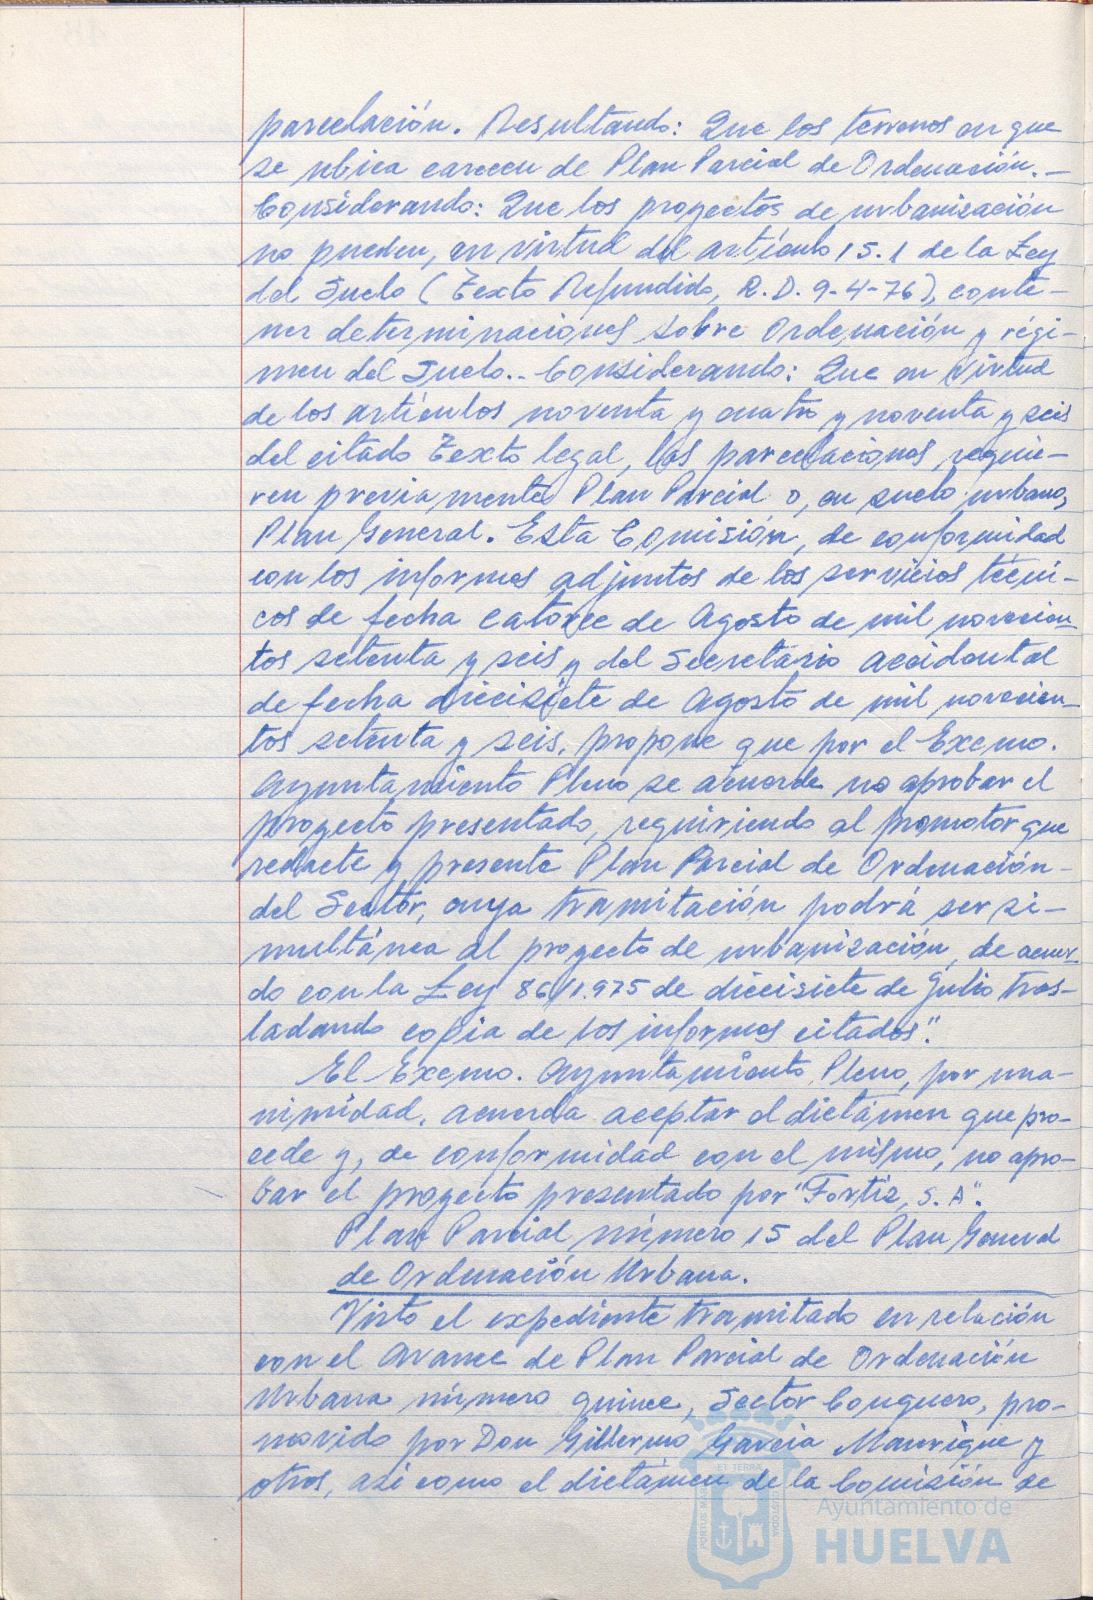 parcelación. Resultando: Que los terrenos en que
se ubica carecen de Plan Parcial de Ordenación.-
Considerando: Que los proyectos de urbanización
no pueden, en virtud del artículo 15.1 de la Ley
del Suelo (Texto Refundido, R.D. 9-4-76), conte-
ner determinaciones sobre Ordenación y régi-
men del Suelo.. Considerando: Que en virtud
de los artículos noventa y cuatro y noventa y seis
del citado Texto legal, las parcelaciones requie-
ren previamente Plan Parcial o, en suelo urbano,
Plan General. Esta Comisión, de conformidad
con los informes adjuntos de los servicios técni-
cos de fecha catorce de Agosto de mil novecien-
tos setenta y seis y del Secretario accidental
de fecha diecisiete de Agosto de mil novecien-
tos setenta y seis, propone que por el Excmo.
Ayuntamiento Pleno se acuerde no aprobar el
proyecto presentado, requiriendo al promotor que
redacte y presente Plan Parcial de Ordenación-
del Sector, cuya tramitación podrá ser si-
multánea al proyecto de urbanización, de acuer-
do con la Ley 86/1.975 de diecisiete de Julio tras-
ladando copia de los informes citados".
El Excmo. Ayuntamiento Pleno, por una-
nimidad, acuerda aceptar el dictámen que pre-
cede y, de conformidad con el mismo, no apro-
bar el proyecto presentado por "Fortiz, S.A".
Plan Parcial número 15 del Plan General
de Ordenación Urbana.
Visto el expediente tramitado en relación
con el Avance de Plan Parcial de Ordenación
Urbana número quince, Sector Conquero, pro-
movido por Don Gillermo García Manrique y
otros, así como el dictámen de la Comisión de
Ayuntamiento de
HUELVA